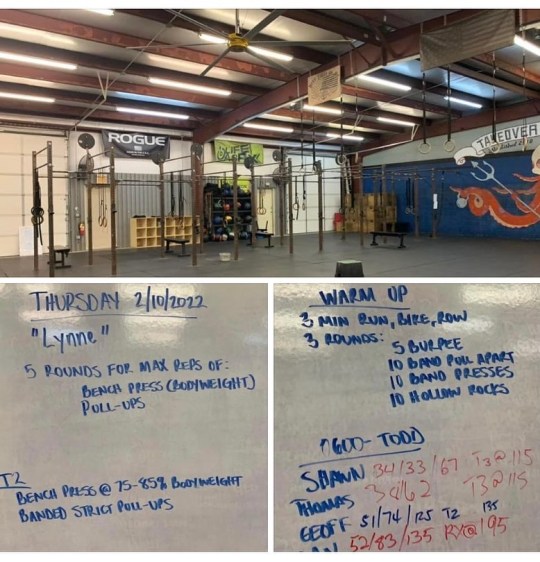 ROGUE
TAKEOVER
THURSDAY 2/10/2022
"Lynne"
5 ROUNDS FOR MAX REPS OF:
BENCH PRESS (BODYWEIGHT)
PULL-UPS
T2
BENCH PRESS @ 75-85% BODYWEIGHT
BANDED STRICT PULL-UPS
WARM UP
3 MIN RUN, BIKE, ROW
3 ROUNDS:
5 BURPEE
10 BAND PULL APART
10 BAND PRESSES
10 HOLLOW ROCKS
0600 - TODD
SHAWN 34/33/67 T3 @ 115
THOMAS T3 @ 115
GEOFF 51/74/125 T2 135
52/83/135 RX @ 195